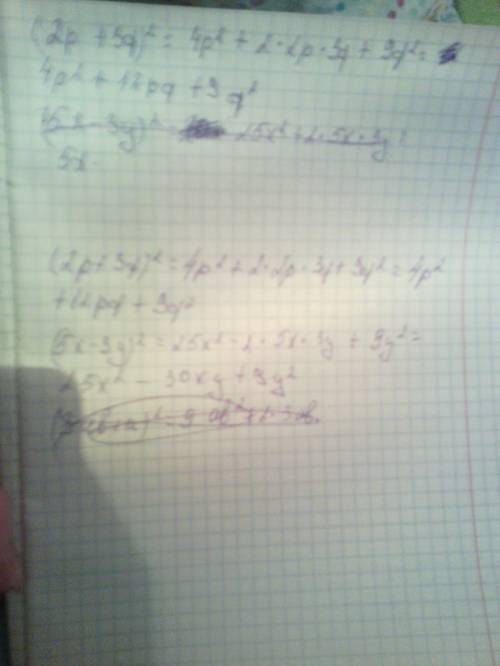 (2p + 3q)² = 4p² + 2·2p·3q + 9q² =
4p² + 12pq + 9q²
(5x - 3y)² = 25x² + 2·5x·3y
5x
(2p+3q)² = 4p² + 2·2p·3q + 9q² = 4p²
+12pq + 9q²
(5x-3y)² = 25x² - 2·5x·3y + 9y² =
25x² - 30xy + 9y²